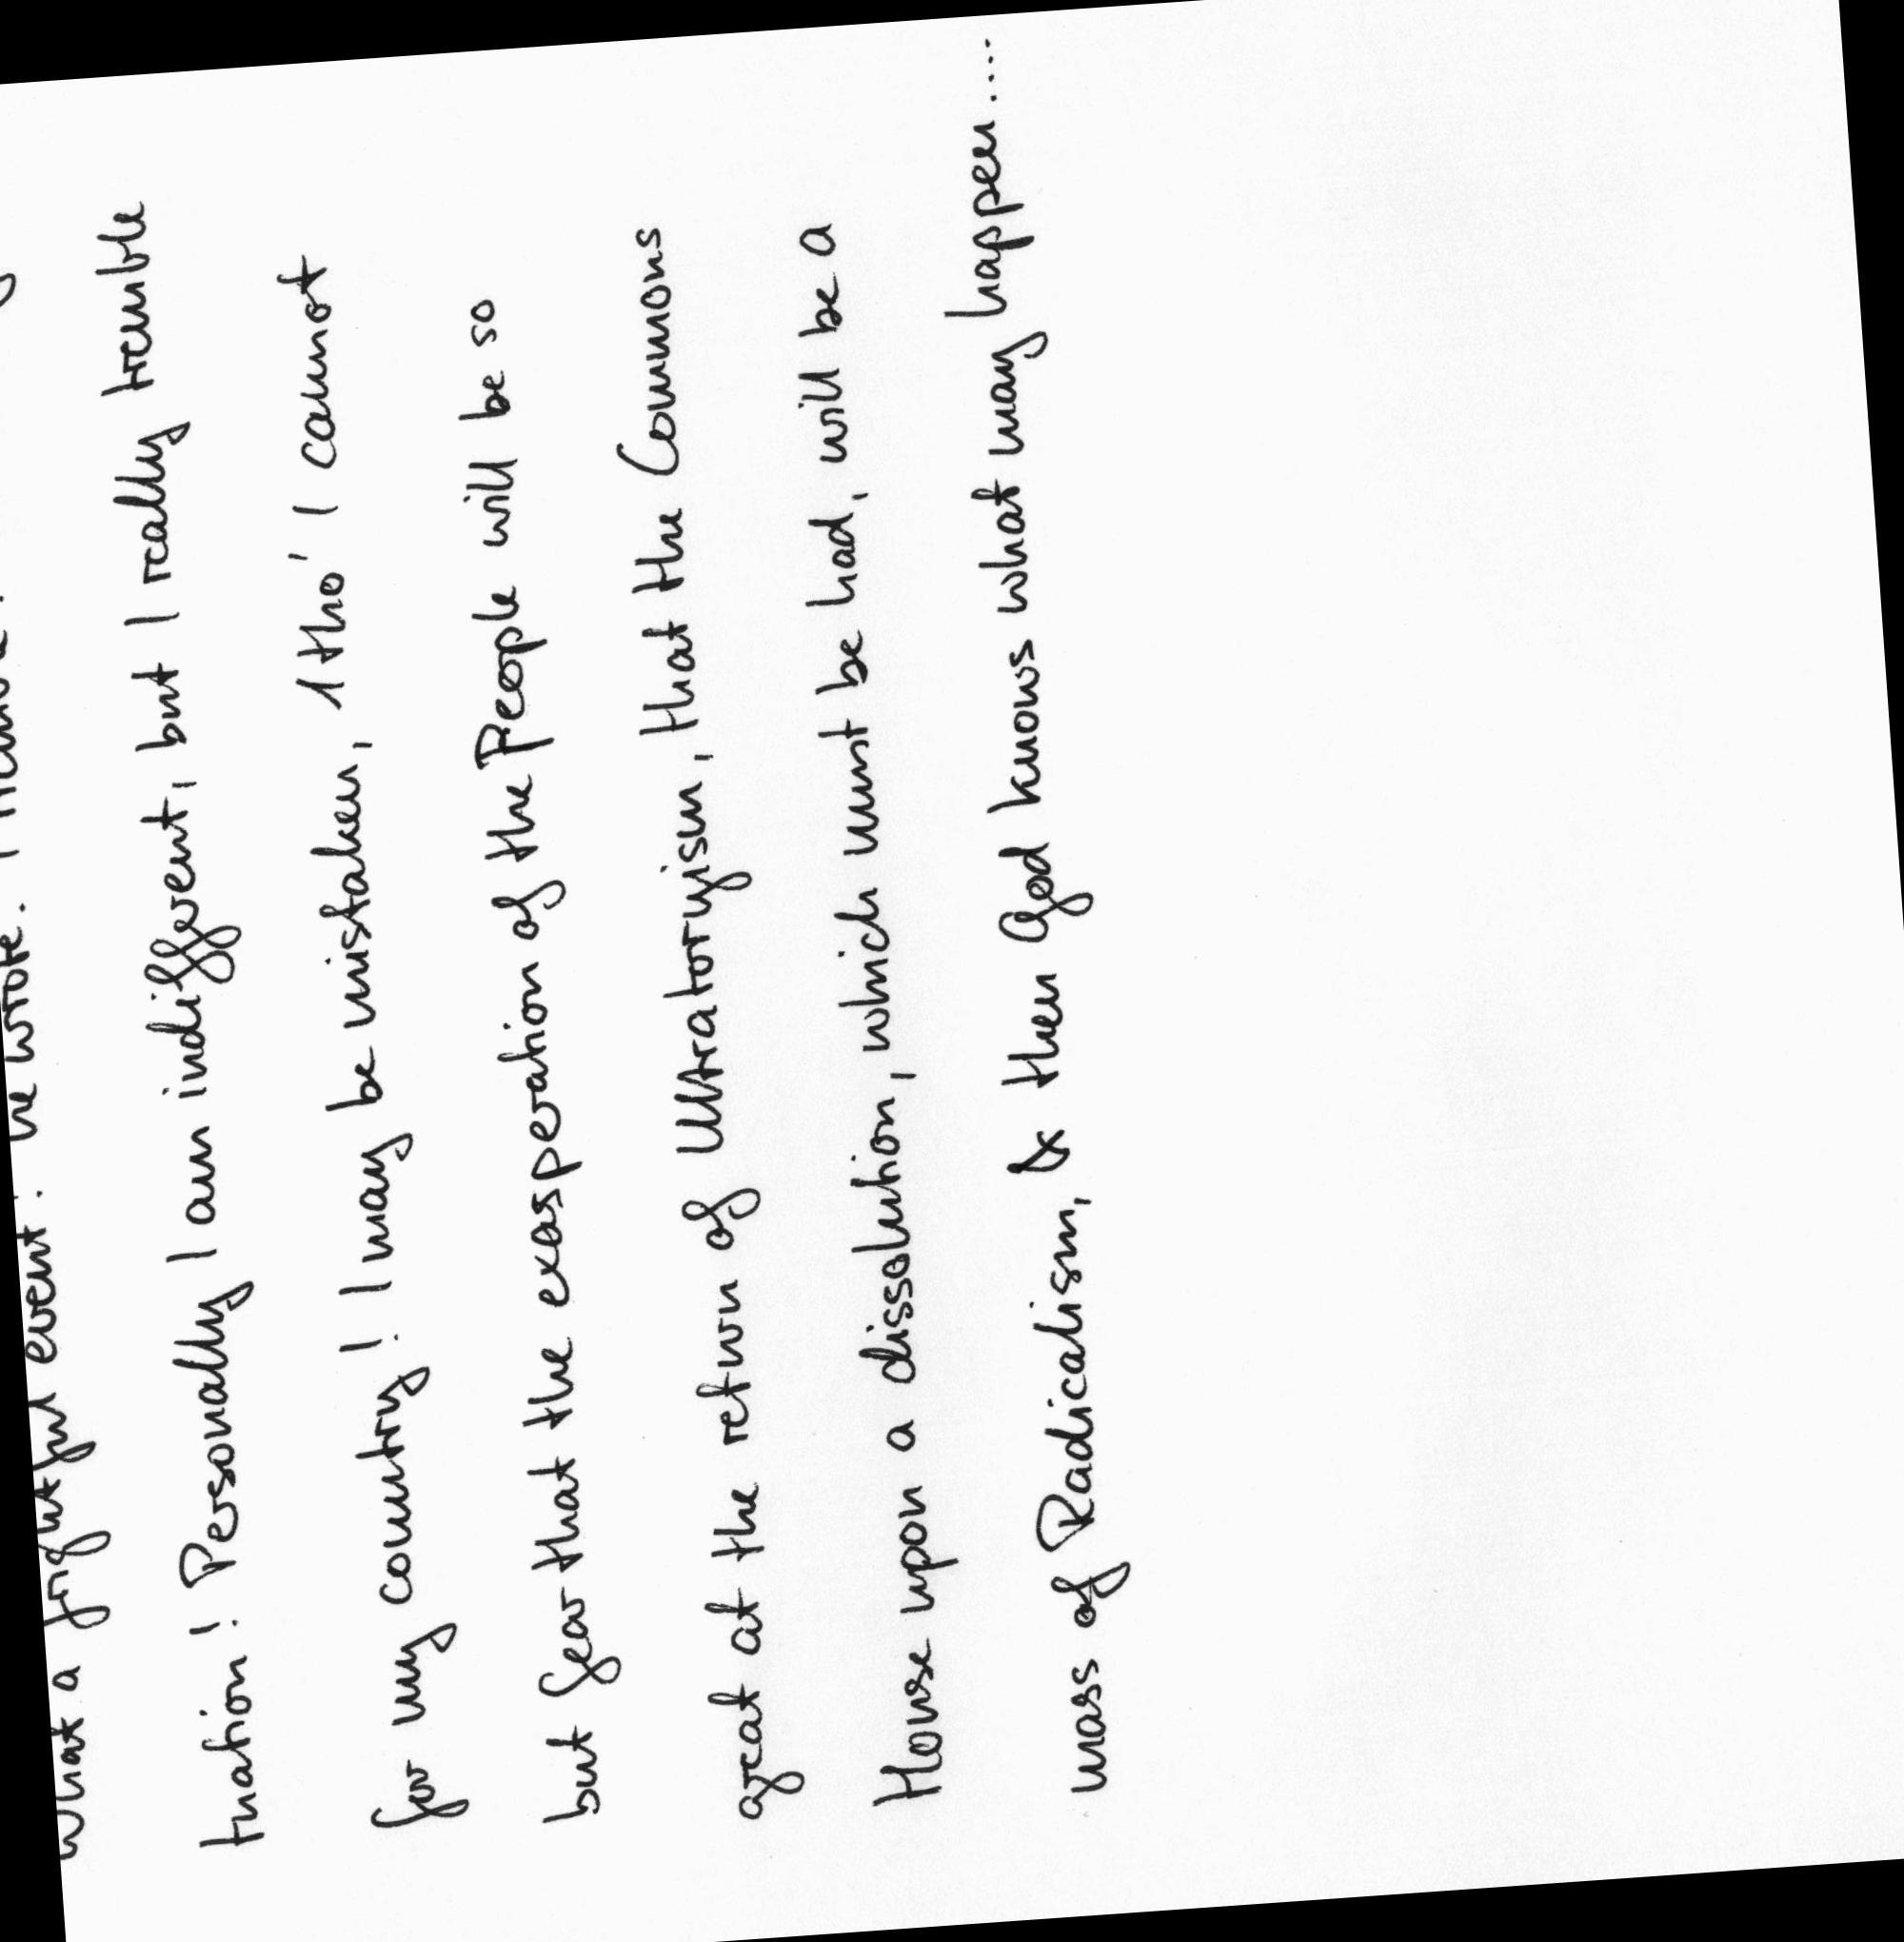 What a frightful event! he wrote.
tuation! Personally I am indifferent, but I really tremble
for my country! I may be mistaken, 1 tho' I cannot
but fear that the exasperation of the People will be so
great at the return of Ultratoryism, that the Commons
House upon a dissolution, which must be had, will be a
mass of Radicalism, & then God knows what may happen....